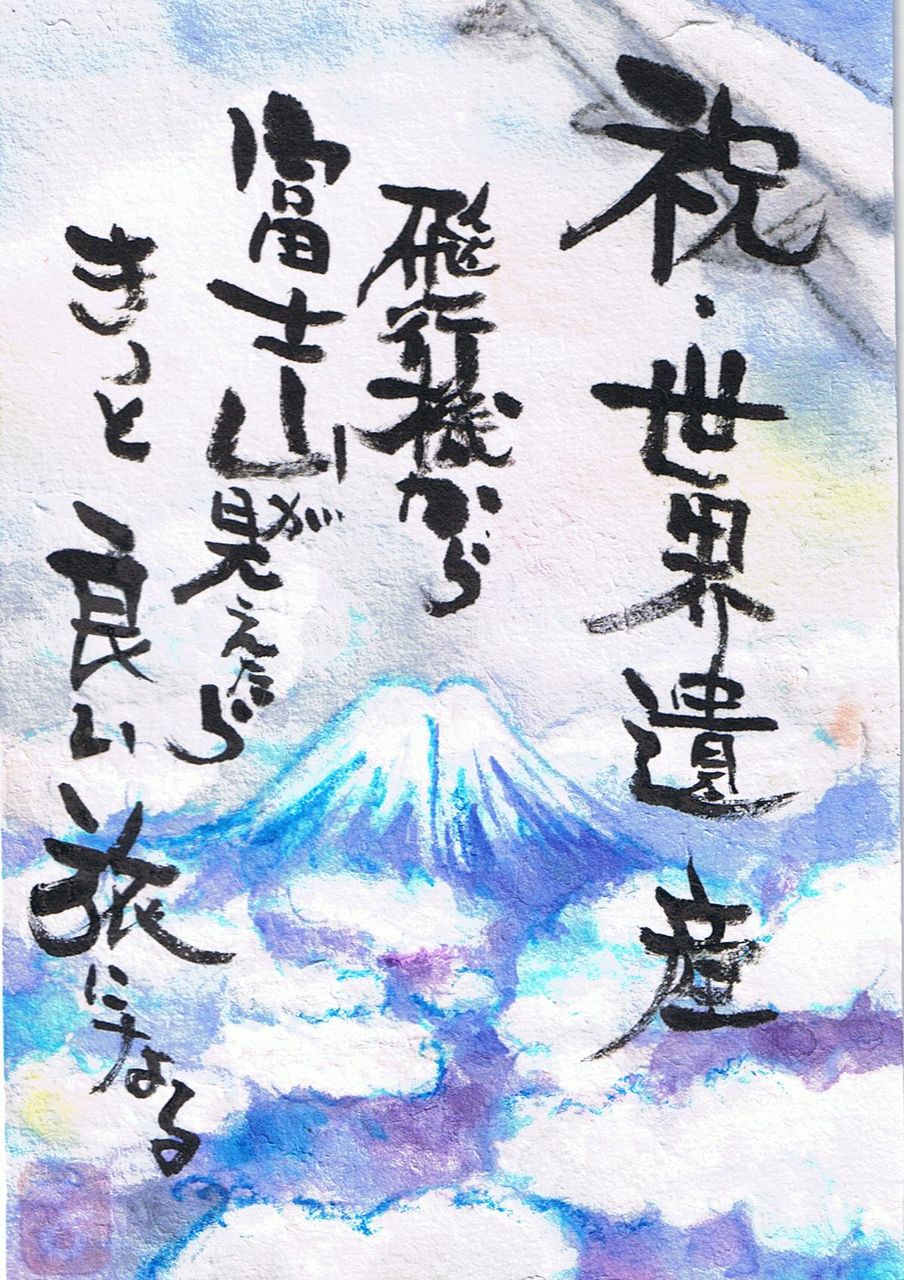 祝・世界遺産
飛行機から
富士山が
見えたら
きっと良い旅になる